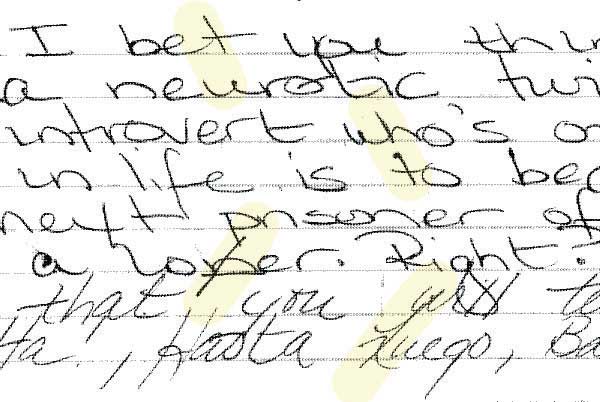 I bet you thin
a neurotic twi
introvert who's on
in life is to bec
next prisoner of
a looper. Right?
that you will te
Ha., Hasta Luego, Ba